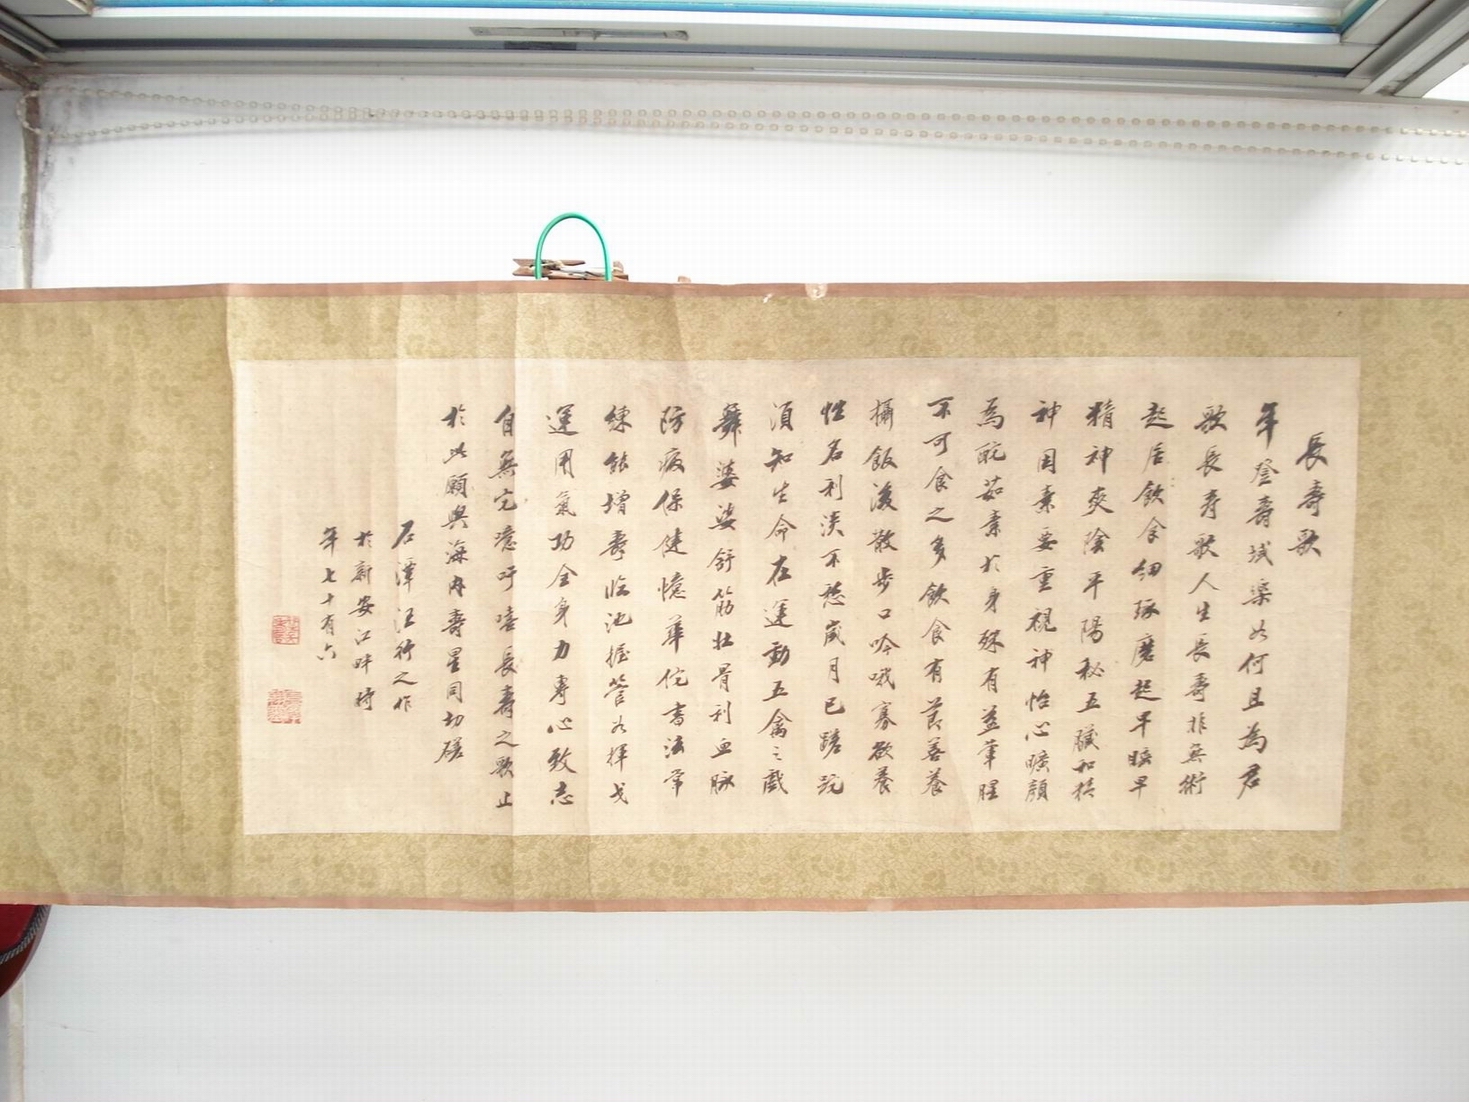 長壽歌
年登壽域樂如何且為君
歌長壽歌人生長壽非無術
起居飲食細琢磨起早眠早
精神爽陰平陽秘五臟和精
神因素要重視神怡心曠顏
為酡茹素於身殊有益葷腥
不可食之多飲食有節善養
攝飯後散步口吟哦寡欲養
性名利淡不愁歲月已蹉跎
須知生命在運動五禽之戲
舞婆娑舒筋壯骨利血脉
防疫保健憶華佗書法常
練能增壽臨池握管如揮戈
運用氣功全身力專心致志
自無它噫吁嘻長壽之歌止
於此願與海內壽星同切磋
石潭汪行之作
於新安江畔時
年七十有六